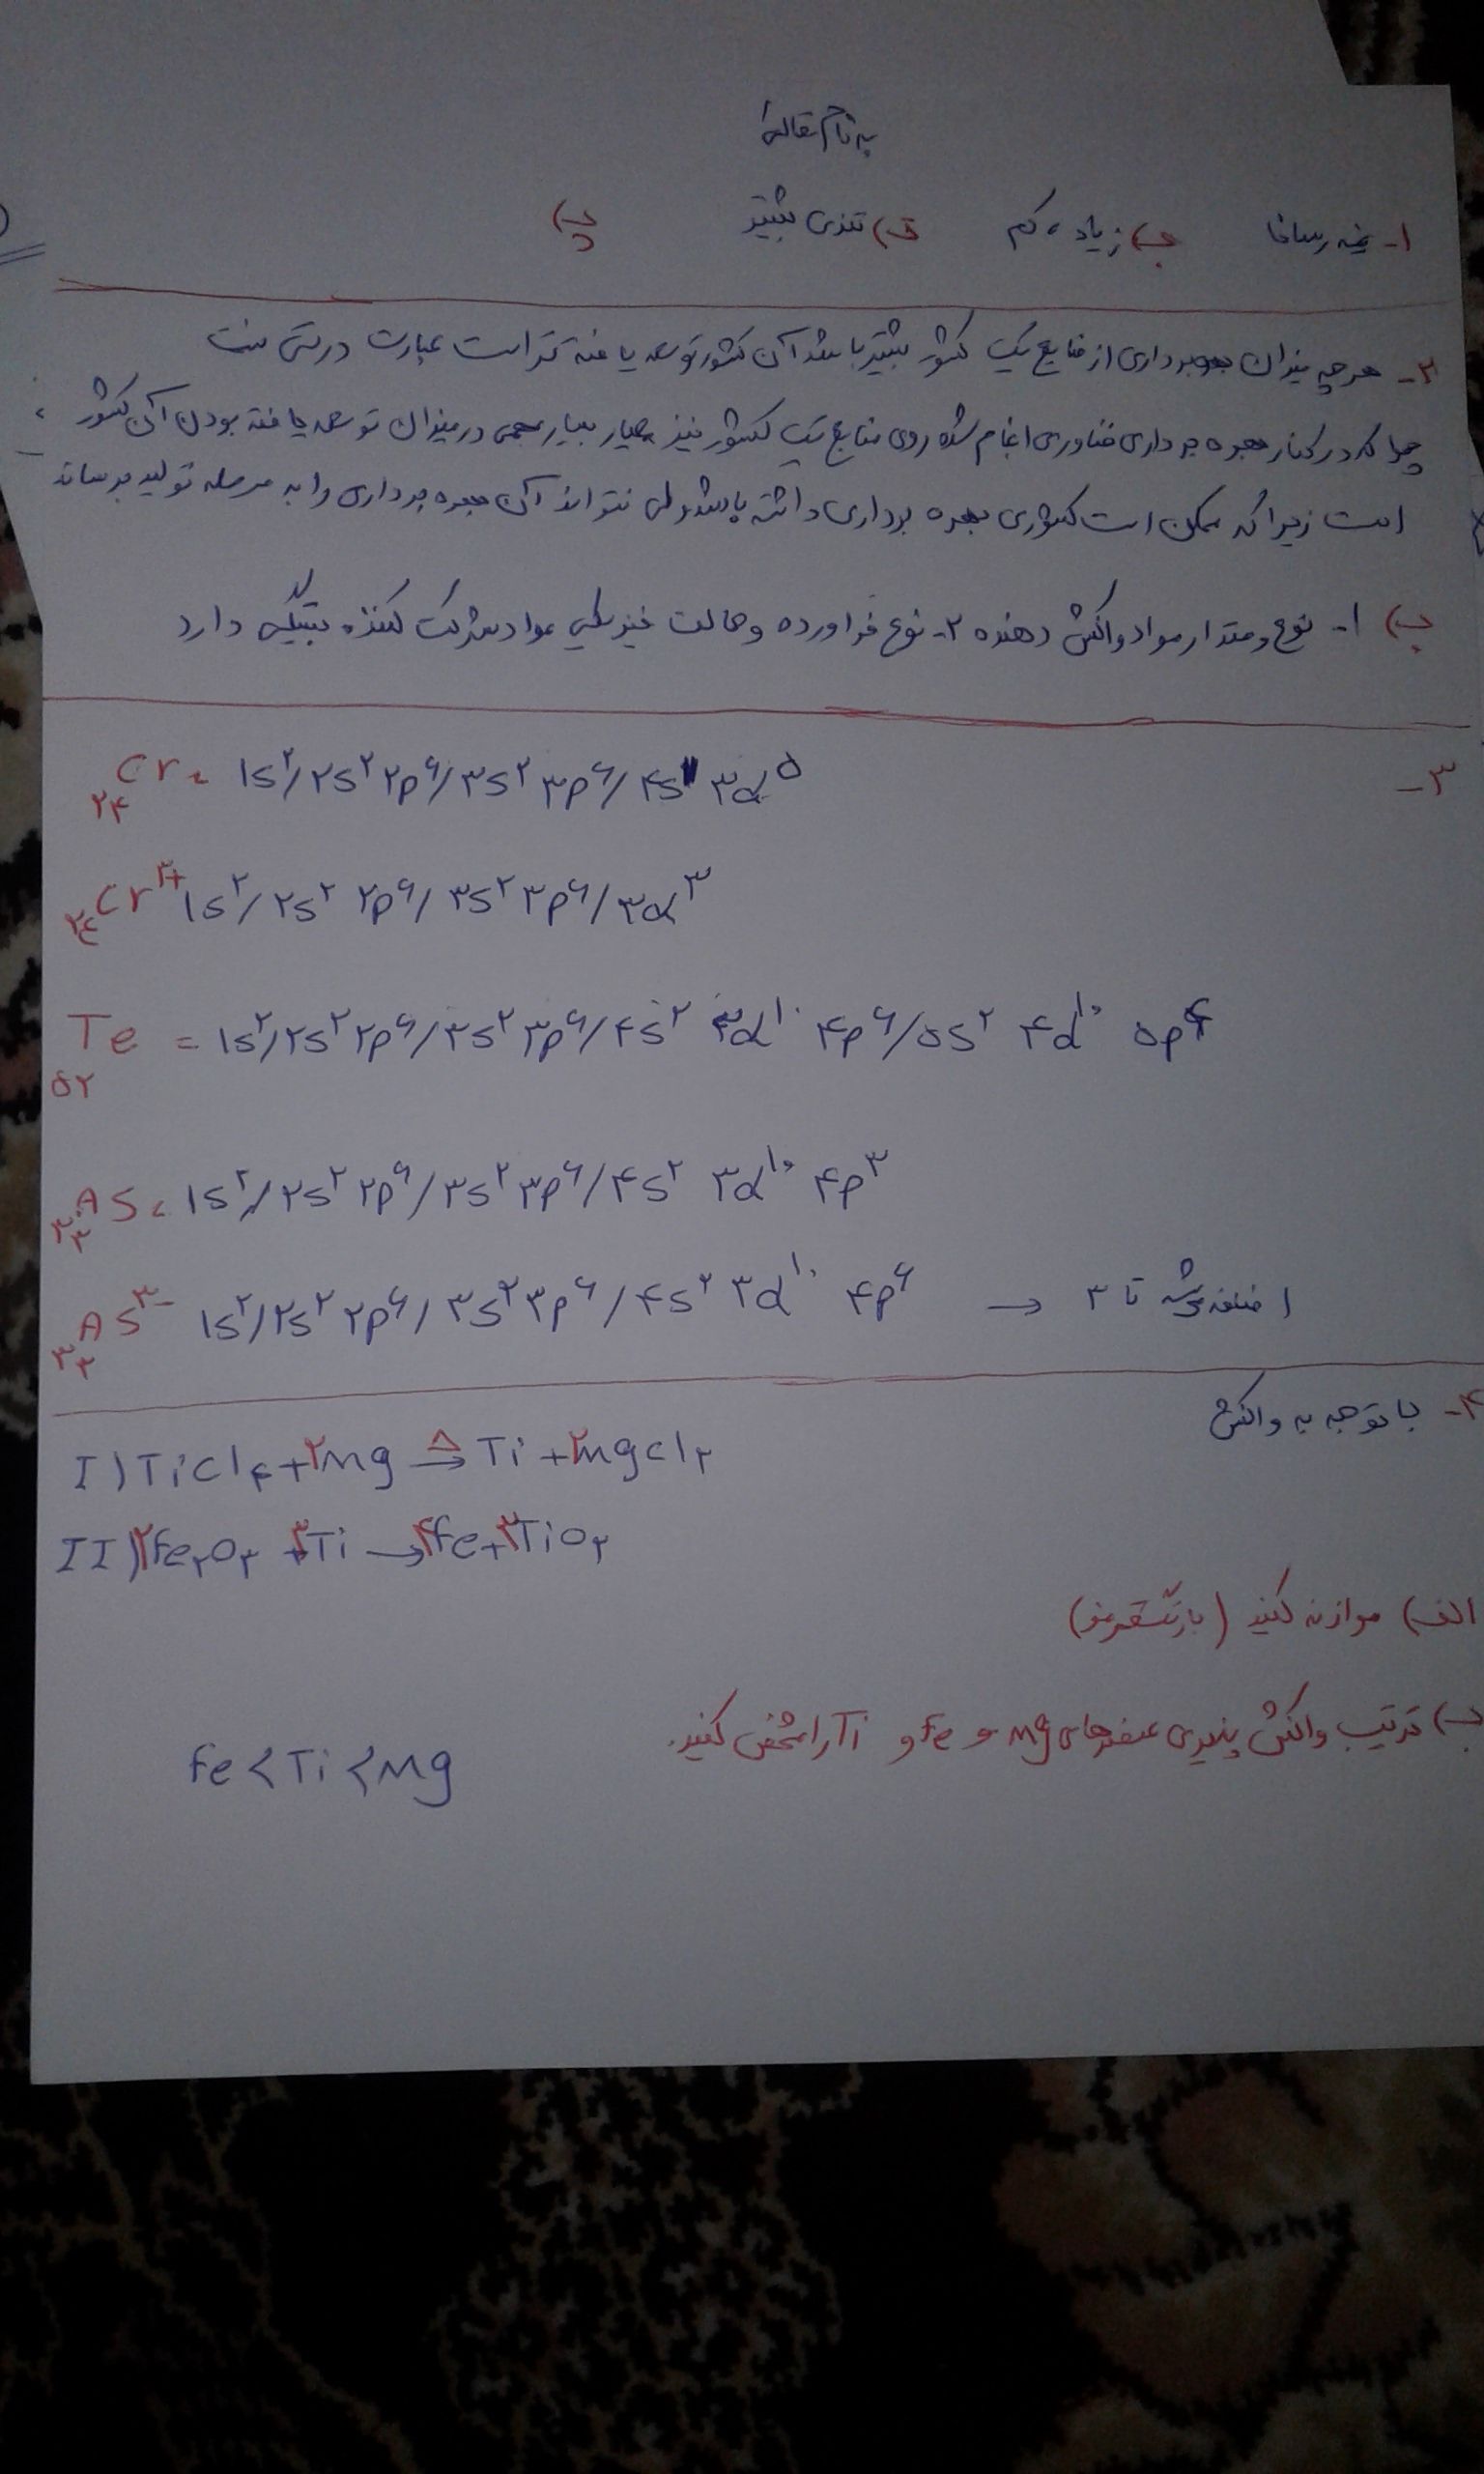 به نام تعالی
۱- نیمه رسانا ب) زیاد، کم ت) تندی بیشتر پ)
۲- هرچه میزان بهره‌برداری از منابع یک کشور بیشتر باشد آن کشور توسعه یافته تر است عبارت درستی نیست
چرا که در کنار بهره برداری فناوری انجام شده روی منابع یک کشور نیز معیار بسیار مهمی در میزان توسعه یافته بودن آن کشور
است زیرا که ممکن است کشوری بهره برداری داشته باشد ولی نتواند آن بهره برداری را به مرحله تولید برساند
ب) ۱- نوع و مقدار مواد واکنش دهنده ۲- نوع فراورده و حالت فیزیکی مواد شرکت کننده بستگی دارد
۳-
۲۴Cr = 1s²/۲s² ۲p⁶/۳s² ۳p⁶/۴s¹ ۳d⁵
۲۴Cr³⁺ 1s²/۲s² ۲p⁶/۳s² ۳p⁶/۳d³
۵۲Te = 1s²/۲s² ۲p⁶/۳s² ۳p⁶/۴s² ۳d¹⁰ ۴p⁶/۵s² ۴d¹⁰ ۵p⁴
۳۳As = 1s²/۲s² ۲p⁶/۳s² ۳p⁶/۴s² ۳d¹⁰ ۴p³
۳۳As³⁻ 1s²/۲s² ۲p⁶/۳s² ۳p⁶/۴s² ۳d¹⁰ ۴p⁶ → ۳ تا اضافه می‌شه
۴- با توجه به واکنش
I) TiCl۴ + ۲Mg →Δ Ti + ۲MgCl۲
II) ۲Fe۲O۳ + ۳Ti → ۴Fe + ۳TiO۲
الف) موازنه کنید (با رنگ قرمز)
ب) ترتیب واکنش پذیری عنصرهای Mg و Fe و Ti را مشخص کنید.
Fe < Ti < Mg